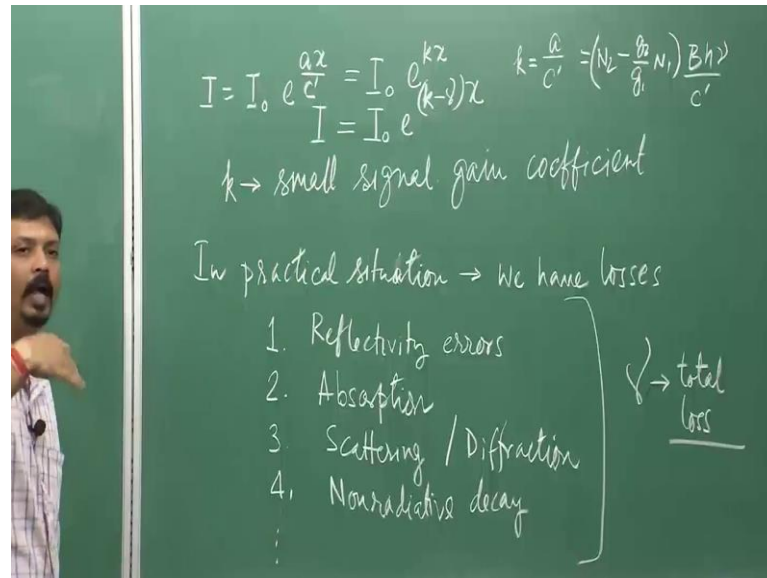 I = I₀ e^{ax/c'} = I₀ e^{kx}   k = a/c' = (N₂ - g₂/g₁ N₁) Bhν/c'
I = I₀ e^{(k-γ)x}
k → small signal gain coefficient
In practical situation → we have losses
1. Reflectivity errors
2. Absorption
3 Scattering / Diffraction
4. Nonradiative decay
⋮
γ → total
loss